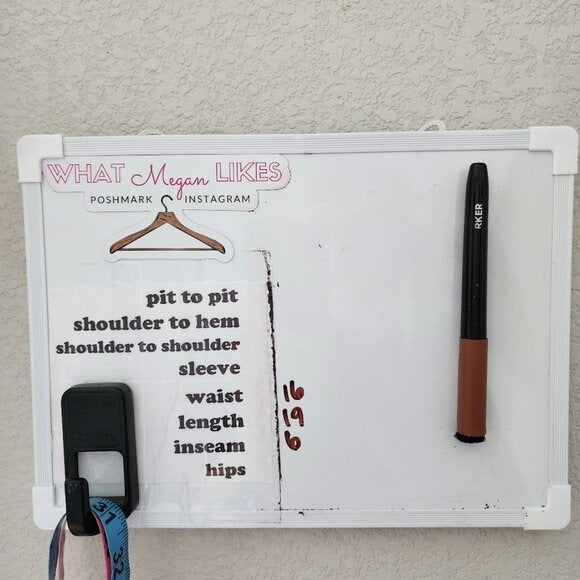 WHAT Megan LIKES
POSHMARK INSTAGRAM
pit to pit
shoulder to hem
shoulder to shoulder
sleeve
waist 16
length 19
inseam 6
hips
RKER
31
32